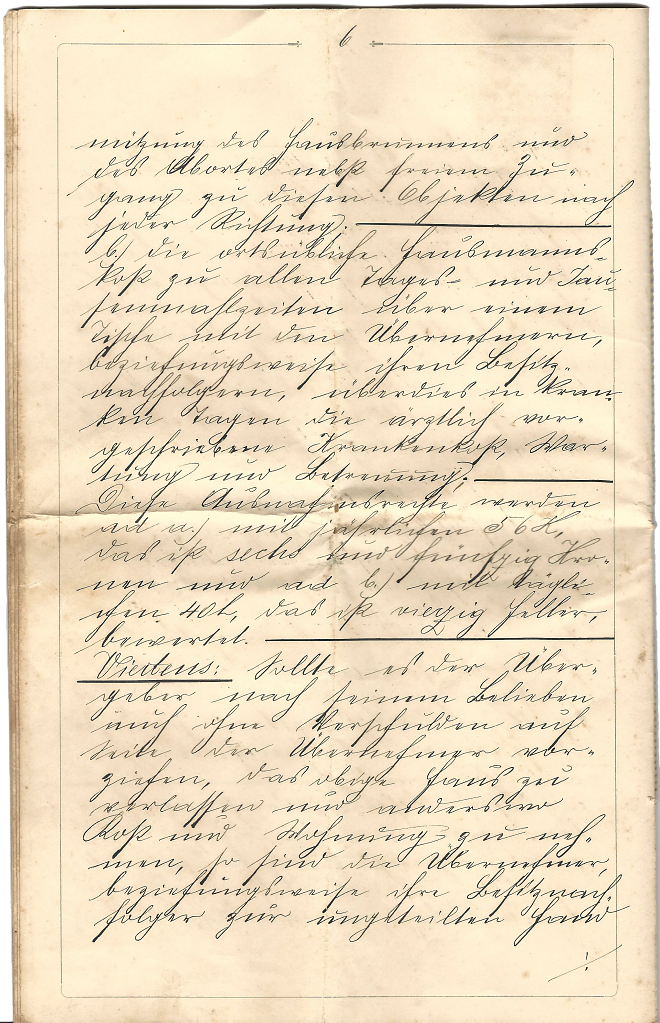 6
nützung des Hausbrunnens und
des Abortes nebst freiem Zu-
gang zu diesen Objekten nach
jeder Richtung.
b.) die ortsübliche Hausmanns-
kost zu allen Tages- und Jau-
senmahlzeiten über einem
Tische mit den Übernehmern,
beziehungsweise ihren Besitz-
nachfolgern, überdies in kran-
ken Tagen die ärztlich vor-
geschriebene Krankenkost, War-
tung und Betreuung.
Diese Ausnahmsrechte werden
ad a.) mit jährlichen 56 K,
das ist sechs und fünfzig Kro-
nen und ad b.) mit tägli-
chen 40 h, das ist vierzig Heller,
bewertet.
Viertens: Sollte es der Über-
geber nach seinem Belieben
auch ohne Verschulden auf
Seite der Übernehmer vor-
ziehen, das obige Haus zu
verlassen und anderswo
Kost und Wohnung zu neh-
men, so sind die Übernehmer,
beziehungsweise ihre Besitznach-
folger zur ungeteilten Hand
./.